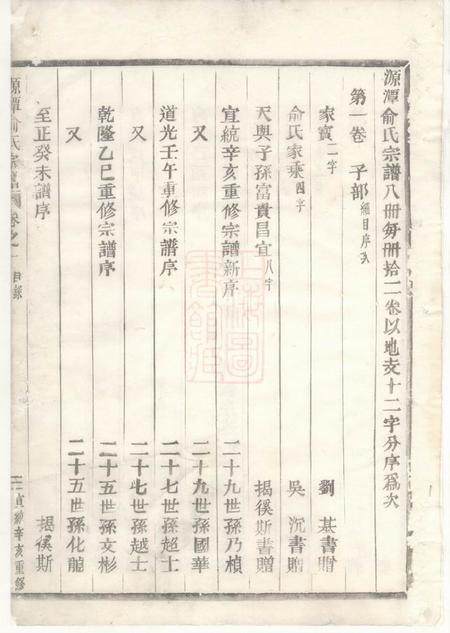 源潭俞氏宗譜八冊每冊拾二卷以地支十二字分序為次
第一卷 子部 細目序次
家寶 二字 劉基書贈
俞氏家乘 四字 吳沉書贈
天與子孫富貴昌宜 八字 揭徯斯書贈
宣統辛亥重修宗譜新序 二十九世孫乃楨
又 二十九世孫國華
道光壬午重修宗譜序 二十七世孫超士
又 二十七世孫越士
乾隆乙巳重修宗譜序 二十五世孫文彬
又 二十五世孫化龍
至正癸未譜序 揭徯斯
源潭俞氏宗譜 卷之一 目錄
宣統辛亥重修